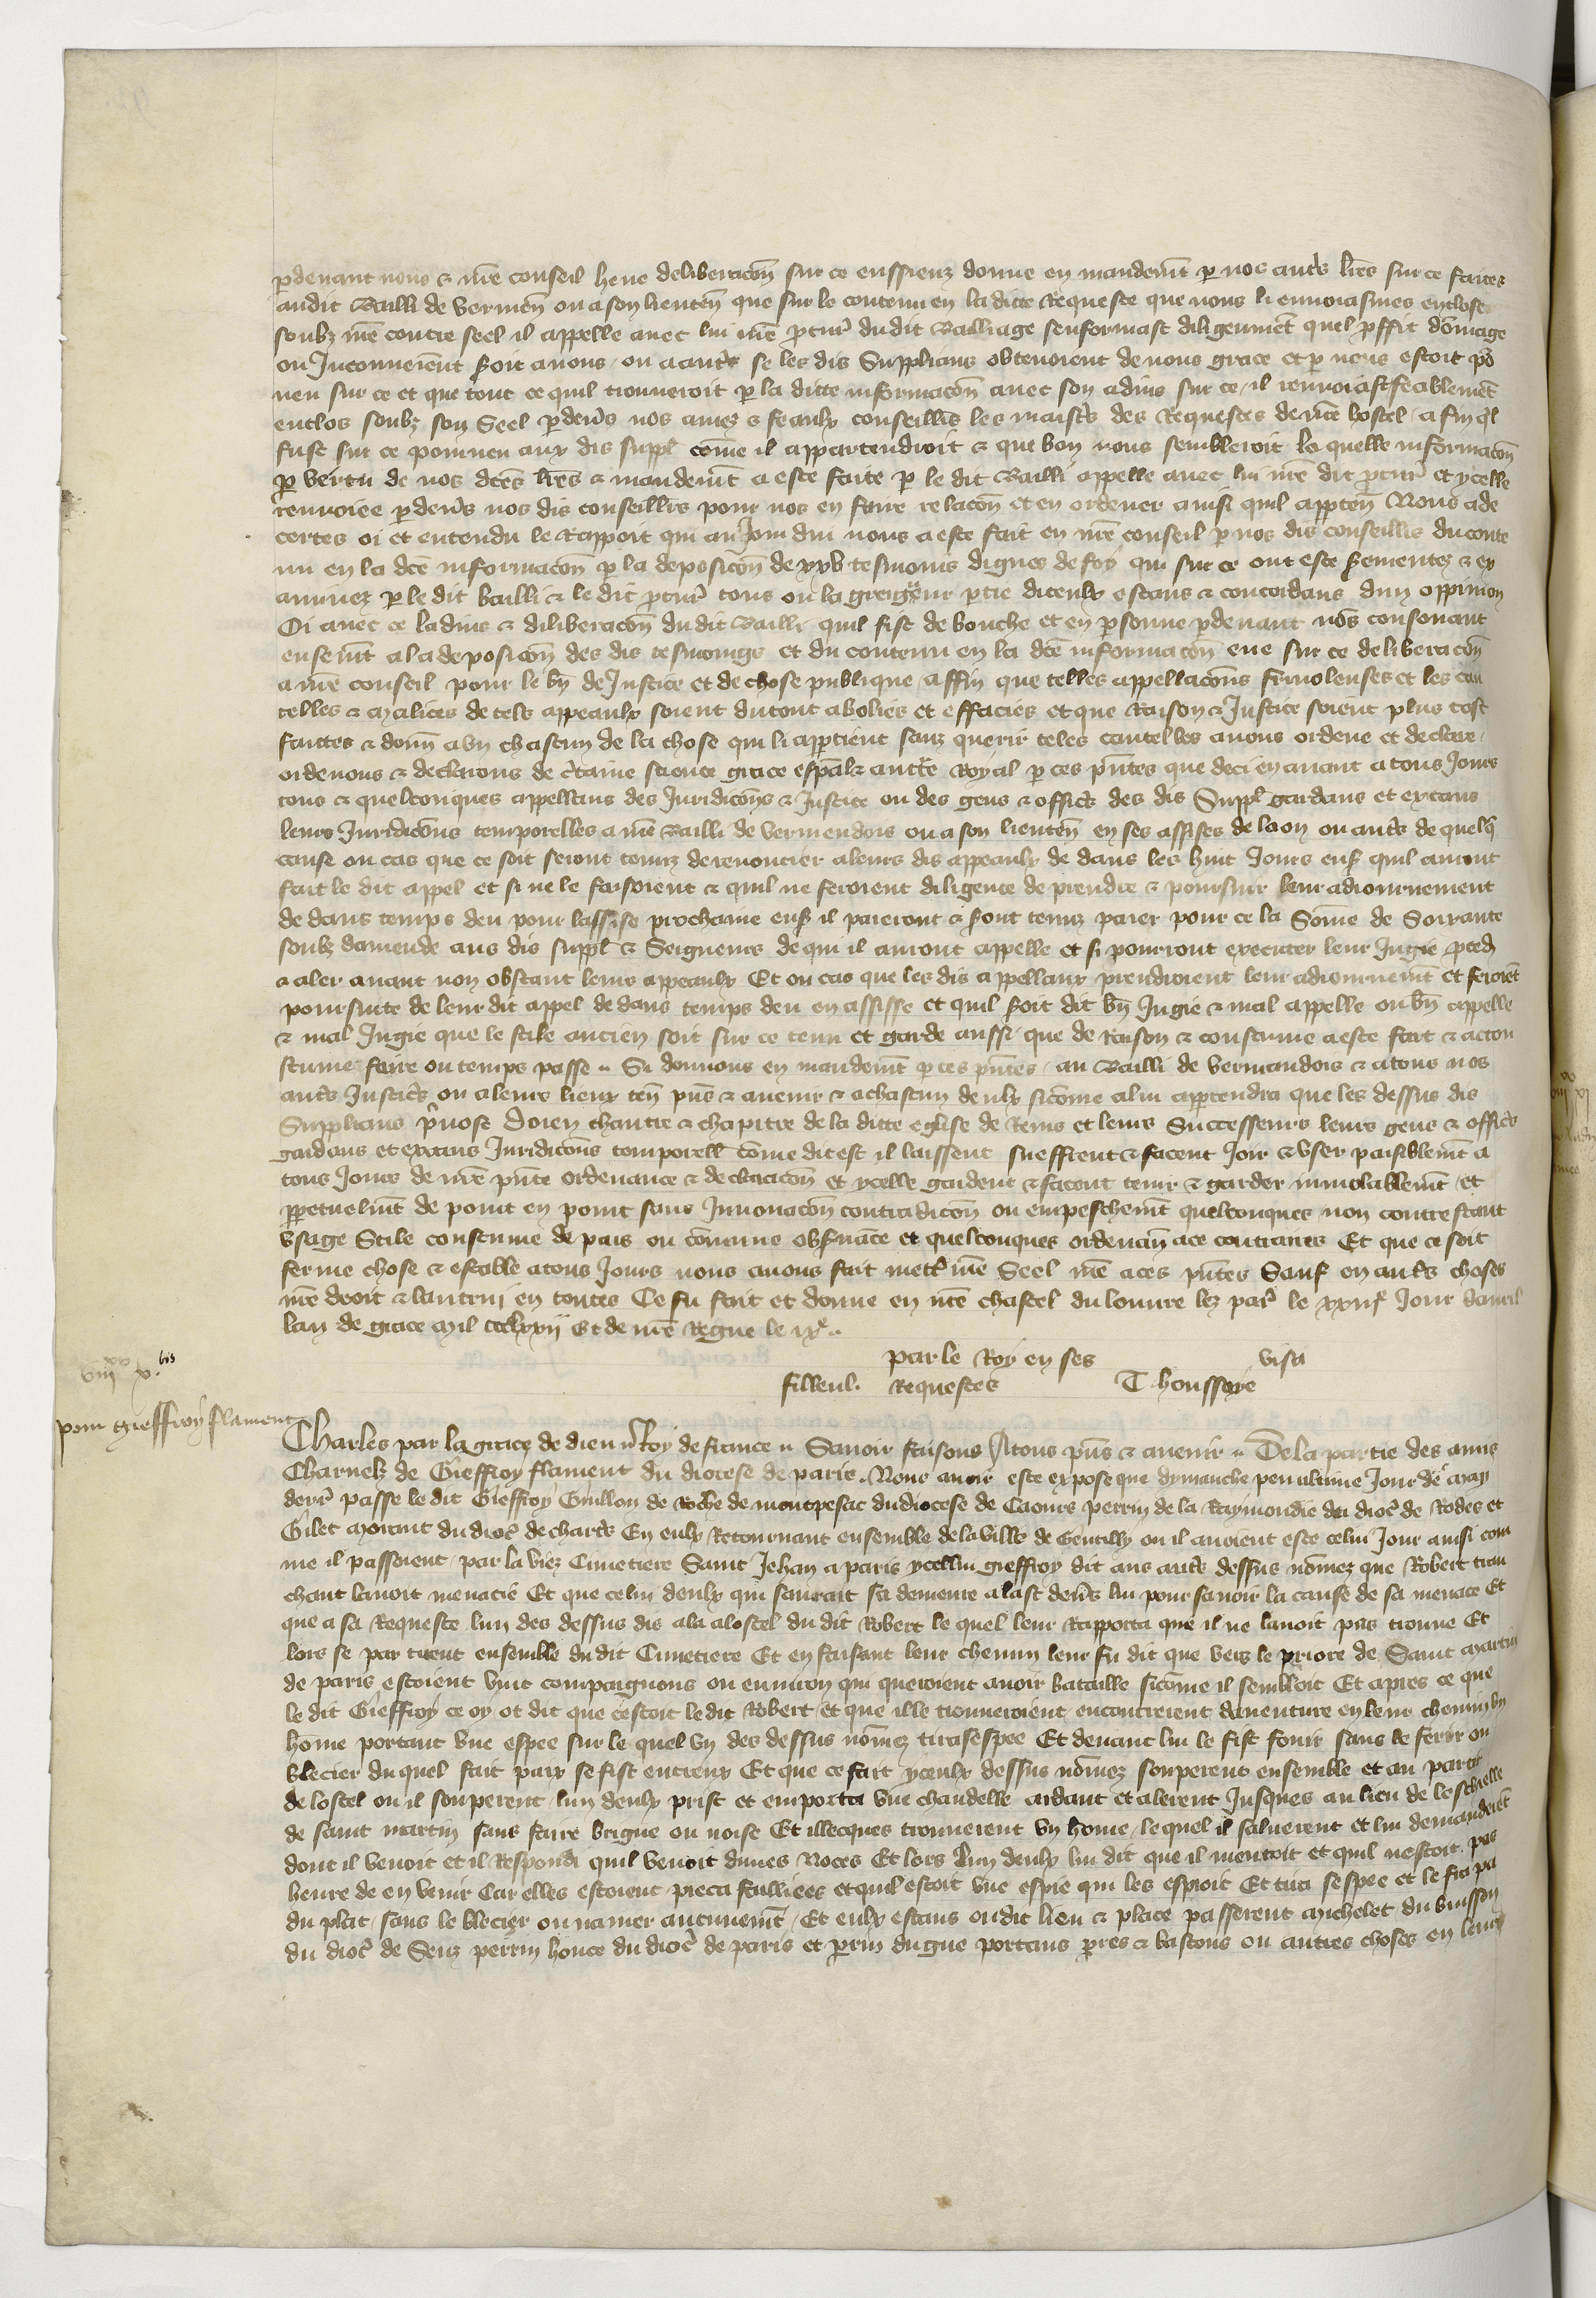 pdevant nous & nre conseil heue deliberacon sur ce eussienz donne en mandemt p nos autres lres sur ce faites
audit Bailli de Vermen ou a son lieuten que sur le contenu en la dicte Requeste que nous li envoiasmes enclose
soubz nre contre seel il appelle avec lui nre pcur dudit Bailliage senformast diligeument quel pffit domage
ou Inconvenient soit a nous ou a autre se les dis Supplians obtenoient de nous grace et p nous estoit po
veu sur ce et que tout ce quil trouveroit p la ditte informacon avec son advis sur ce il renvoiast feablement
enclos soubz son Seel pdevs nos amez & feaulx conseillrs les maistres des Requestes de nre hostel a fin ql
fust sur ce pourveu aux dis suppl come il appartendroit & que bon nous sembleroit la quelle informacon
p vertu de nos dces lres & mandemt a este faite p le dit Bailli appelle avec lui nre dit pcur et ycelle
renvoiee pdevs nos dis conseillrs pour nos en faire relacon et en ordener ainsi quil appten Nous ade
certes oi et entendu le Rapport qui aujourdui nous a este fait en nre conseil p nos dis conseillrs du conte
nu en la dce informacon p la deposicon de xxv tesmoins dignes de foy qui sur ce ont este sermentez & ex
aminez p le dit bailli & le dit pcur tous ou la greigneur ptie diceulx estans & concordans dun oppinion
Oi avec ce ladvis & deliberacon dudit Bailli quil fist de bouche et en psonne pdevant nos consonant
ensemt a la deposicon des dis tesmoings et du contenu en la dce informacon eue sur ce deliberacon
a nre conseil pour le bn de Justice et de chose publique affin que telles appellacons frivolenses et les cau
telles & malices de tels appeaulx soient du tout abolies et effacies et que Raison & Justice soient plus tost
faittes & donn a un chascun de la chose qui li aptient sanz querir teles cautelles avons ordene et declare
ordenons & declairons de ctaine science grace espal & auttre Royal p ces pntes que deci en avant a tous Jours
tous & quelconques appellans des Juridicons & Justice ou des gens & offices des dis Suppl gardans et excans
leurs Juridicons temporelles a nre Bailli de Vermendois ou a son lieuten en ses assises de laon ou autres de quelq
cause ou cas que ce soit seront tenuz de renoncier a leurs dis appeaulx de dans les huit Jours ens quil auront
fait le dit appel et si ne le faisoient & quil ne feroient diligence de prendre & poursuir leur adiournement
de dans temps deu pour lassise prochaine ens il paieront & sont tenuz paier pour ce la Some de Soixante
soulz damende aus dis suppl & Seigneurs de qui il auront appelle et si pourront executer leur Jugie pced
& aler avant non obstant leurs appeaulx Et ou cas que les dis appellanx prendroient leur adiournemt et feroiet
poursuite de leur dit appel de dans temps deu en assisse et quil soit dit bn Jugie & mal appelle ou bn appelle
& mal Jugie que le stile ancien soit sur ce tenu et garde aussi que de Raison & coustume a este fait & acou
stume faire ou temps passe Si donnons en mandemt p ces pntes au Bailli de Vermandois & a tous nos
autres Justices ou a leurs lieux ten pns & avenir & a chascun deulx sicome a lui aptendra que les dessus dis
Supplians pvose Doien chantre & chapitre de la ditte eglise de Reins et leurs Successeurs leurs gens & offices
gardans et excans Juridicons temporell come dit est il laissent sueffrent & facent Joir & user paisiblemt a
tous Jours de nre pnte ordenance & declaracon et ycelle gardent & facent tenir & garder inviolablemt et
ppetuelmt de point en point sans Innovacon contradicon ou empeschemt quelconques non contrestant
usage Stile coustume de pais ou comune obsvance et quelconques ordenan a ce contraires Et que ce soit
ferme chose & estable a tous Jours nous avons fait mettre nre Seel nre a ces pntes Sauf en autres choses
nre droit & lautruj en toutes Ce fu fait et donne en nre chastel du louvre lez par le xxiije Jour davril
lan de grace mil ccclxxij Et de nre Regne le ixe
par le Roy en ses visa
filleul. Requestes T houssoye
viij xx x. bis
pour Gieffroy flament
Charles par la grace de dieu Roy de france Savoir faisons A tous pns & avenir De la partie des amis
Charnelz de Gieffroy flament du diocese de paris. Nous avoir este expose que dymanche penultime Jour de may
dern passe le dit Gieffroy Guillon de Roche de montpesac du diocese de Caours perrin de la Raymondie du dioc de Rodes et
Gilet morant du dioc de chartres En eulx Retournant ensemble de la ville de Gentilly ou il avoient este celui Jour ainsi com
me il passoient par la viez Cimetiere Saint Jehan a paris ycellui gieffroy dit aus autres dessus nomez que Robert tran
chant lavoit menacie Et que celui deulx qui sauroit sa demeure alast devs lui pour savoir la cause de sa menace Et
que a sa Requeste lun des dessus dis ala a lostel du dit Robert le quel leur Rapporta que il ne lavoit pas trouve Et
lors se partirent ensemble du dit Cimetiere Et en faisant leur chemin leur fu dit que vers le priore de Saint martin
de paris estoient huit compaignons ou environ qui queroient avoir bataille sicome il sembloit Et apres ce que
le dit Gieffroy ce oy ot dit que cestoit le dit Robert et que il le trouveroient encontrerent daventure en leur chemin un
home portant une espee sur le quel un des dessus nomez tira sespee Et devant lui le fist fouir sans le ferir ou
blecier du quel fait paix se fist entreux Et que ce fait yceulx dessus nomez souperent ensemble et au partir
de lostel ou il souperent lun deulx prist et emporta une chandelle ardant et alerent Jusques au lieu de leschielle
de saint martin sans faire brigue ou noise Et illecques trouverent un home lequel il saluerent et lui demanderet
dont il venoit et il Respondi quil venoit dunes Noces Et lors lun deulx lui dit que il mentoit et quil nestoit pas
heure de en venir Car elles estoient pieca faillies et quil estoit une espie qui les espioit Et tira sespee et le frapa
du plat sans le blecier ou navrer aucunemt Et eulx estans oudit lieu & place passerent michelet du buisson
du dioc de Senz perrin houce du dioc de paris et perrin dugue portans pres & bastons ou autres choses en leurs